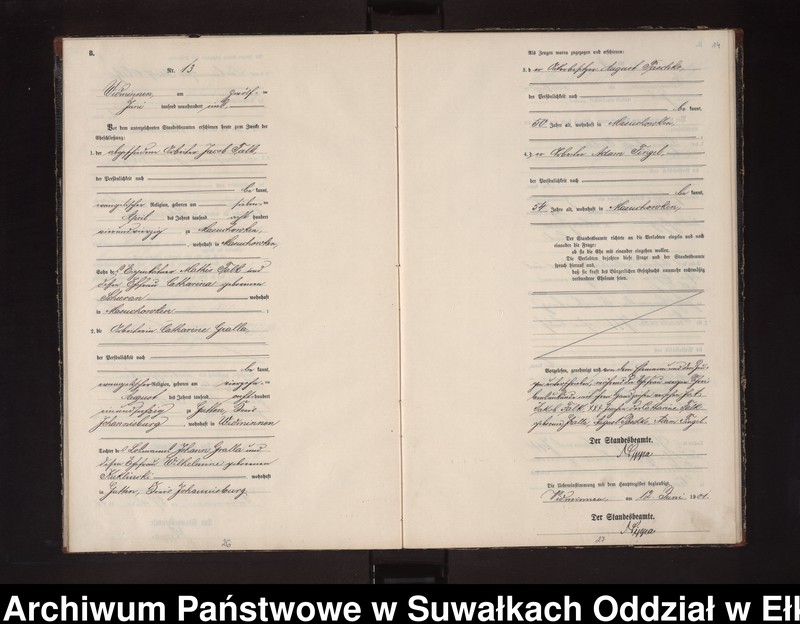 B.
Nr. 13
Widminnen, am zwölf- ten
Juni tausend neunhundert und
Vor dem unterzeichneten Standesbeamten erschienen heute zum Zwecke der
Eheschließung:
1. der Arbeiter Jacob Falk
der Persönlichkeit nach
be kannt,
evangelischer Religion, geboren am sieben- ten
April des Jahres tausend acht hundert
zu Masuchowken,
, wohnhaft in Masuchowken,
Sohn des Eigenkätner Mathes Falk und
dessen Ehefrau Catharina geborenen
wohnhaft
in Masuchowken ;
2. die Arbeiterin Catharine Gralla,
der Persönlichkeit nach
be kannt,
evangelischer Religion, geboren am vierzehn- ten
August des Jahres tausend acht hundert
zu Gutten, Kreis
Johannisburg, wohnhaft in Widminnen
Tochter des Losmann Johann Gralla und
dessen Ehefrau Wilhelmine geborenen
wohnhaft
in Gutten, Kreis Johannisburg
26
34
Als Zeugen waren zugezogen und erschienen:
3. der Arbeiter August
der Persönlichkeit nach
be kannt,
50 Jahre alt, wohnhaft in Masuchowken
;
4. der Arbeiter Adam Fingel,
der Persönlichkeit nach
be kannt,
54 Jahre alt, wohnhaft in Masuchowken,
Der Standesbeamte richtete an die Verlobten einzeln und nach
einander die Frage:
ob sie die Ehe mit einander eingehen wollen.
Die Verlobten bejahten diese Frage und der Standesbeamte
sprach hierauf aus,
daß sie kraft des Bürgerlichen Gesetzbuchs nunmehr rechtmäßig
verbundene Eheleute seien.
Vorgelesen, genehmigt und von dem Ehemann und den Zeu-
gen unterschrieben, während die Ehefrau wegen Schrei-
Jakob Falk. +++ Catharina Falk
geborene Gralla. August Adam Fingel.
Der Standesbeamte.
Die Uebereinstimmung mit dem Hauptregister beglaubigt.
Widminnen, am 12 Juni 1901.
Der Standesbeamte.
27
Archiwum Państwowe w Suwałkach Oddział w Ełk